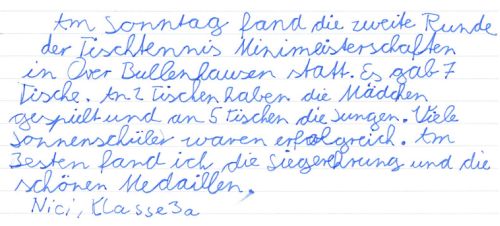 Am Sonntag fand die zweite Runde
der Tischtennis Minimeisterschaften
in Over Bullenhausen statt. Es gab 7
Tische. An 2 Tischen haben die Mädchen
gespielt und an 5 Tischen die Jungen. Viele
Sonnenschüler waren erfolgreich. Am
Besten fand ich die Siegerehrung und die
schönen Medaillen.
Nici, Klasse 3a